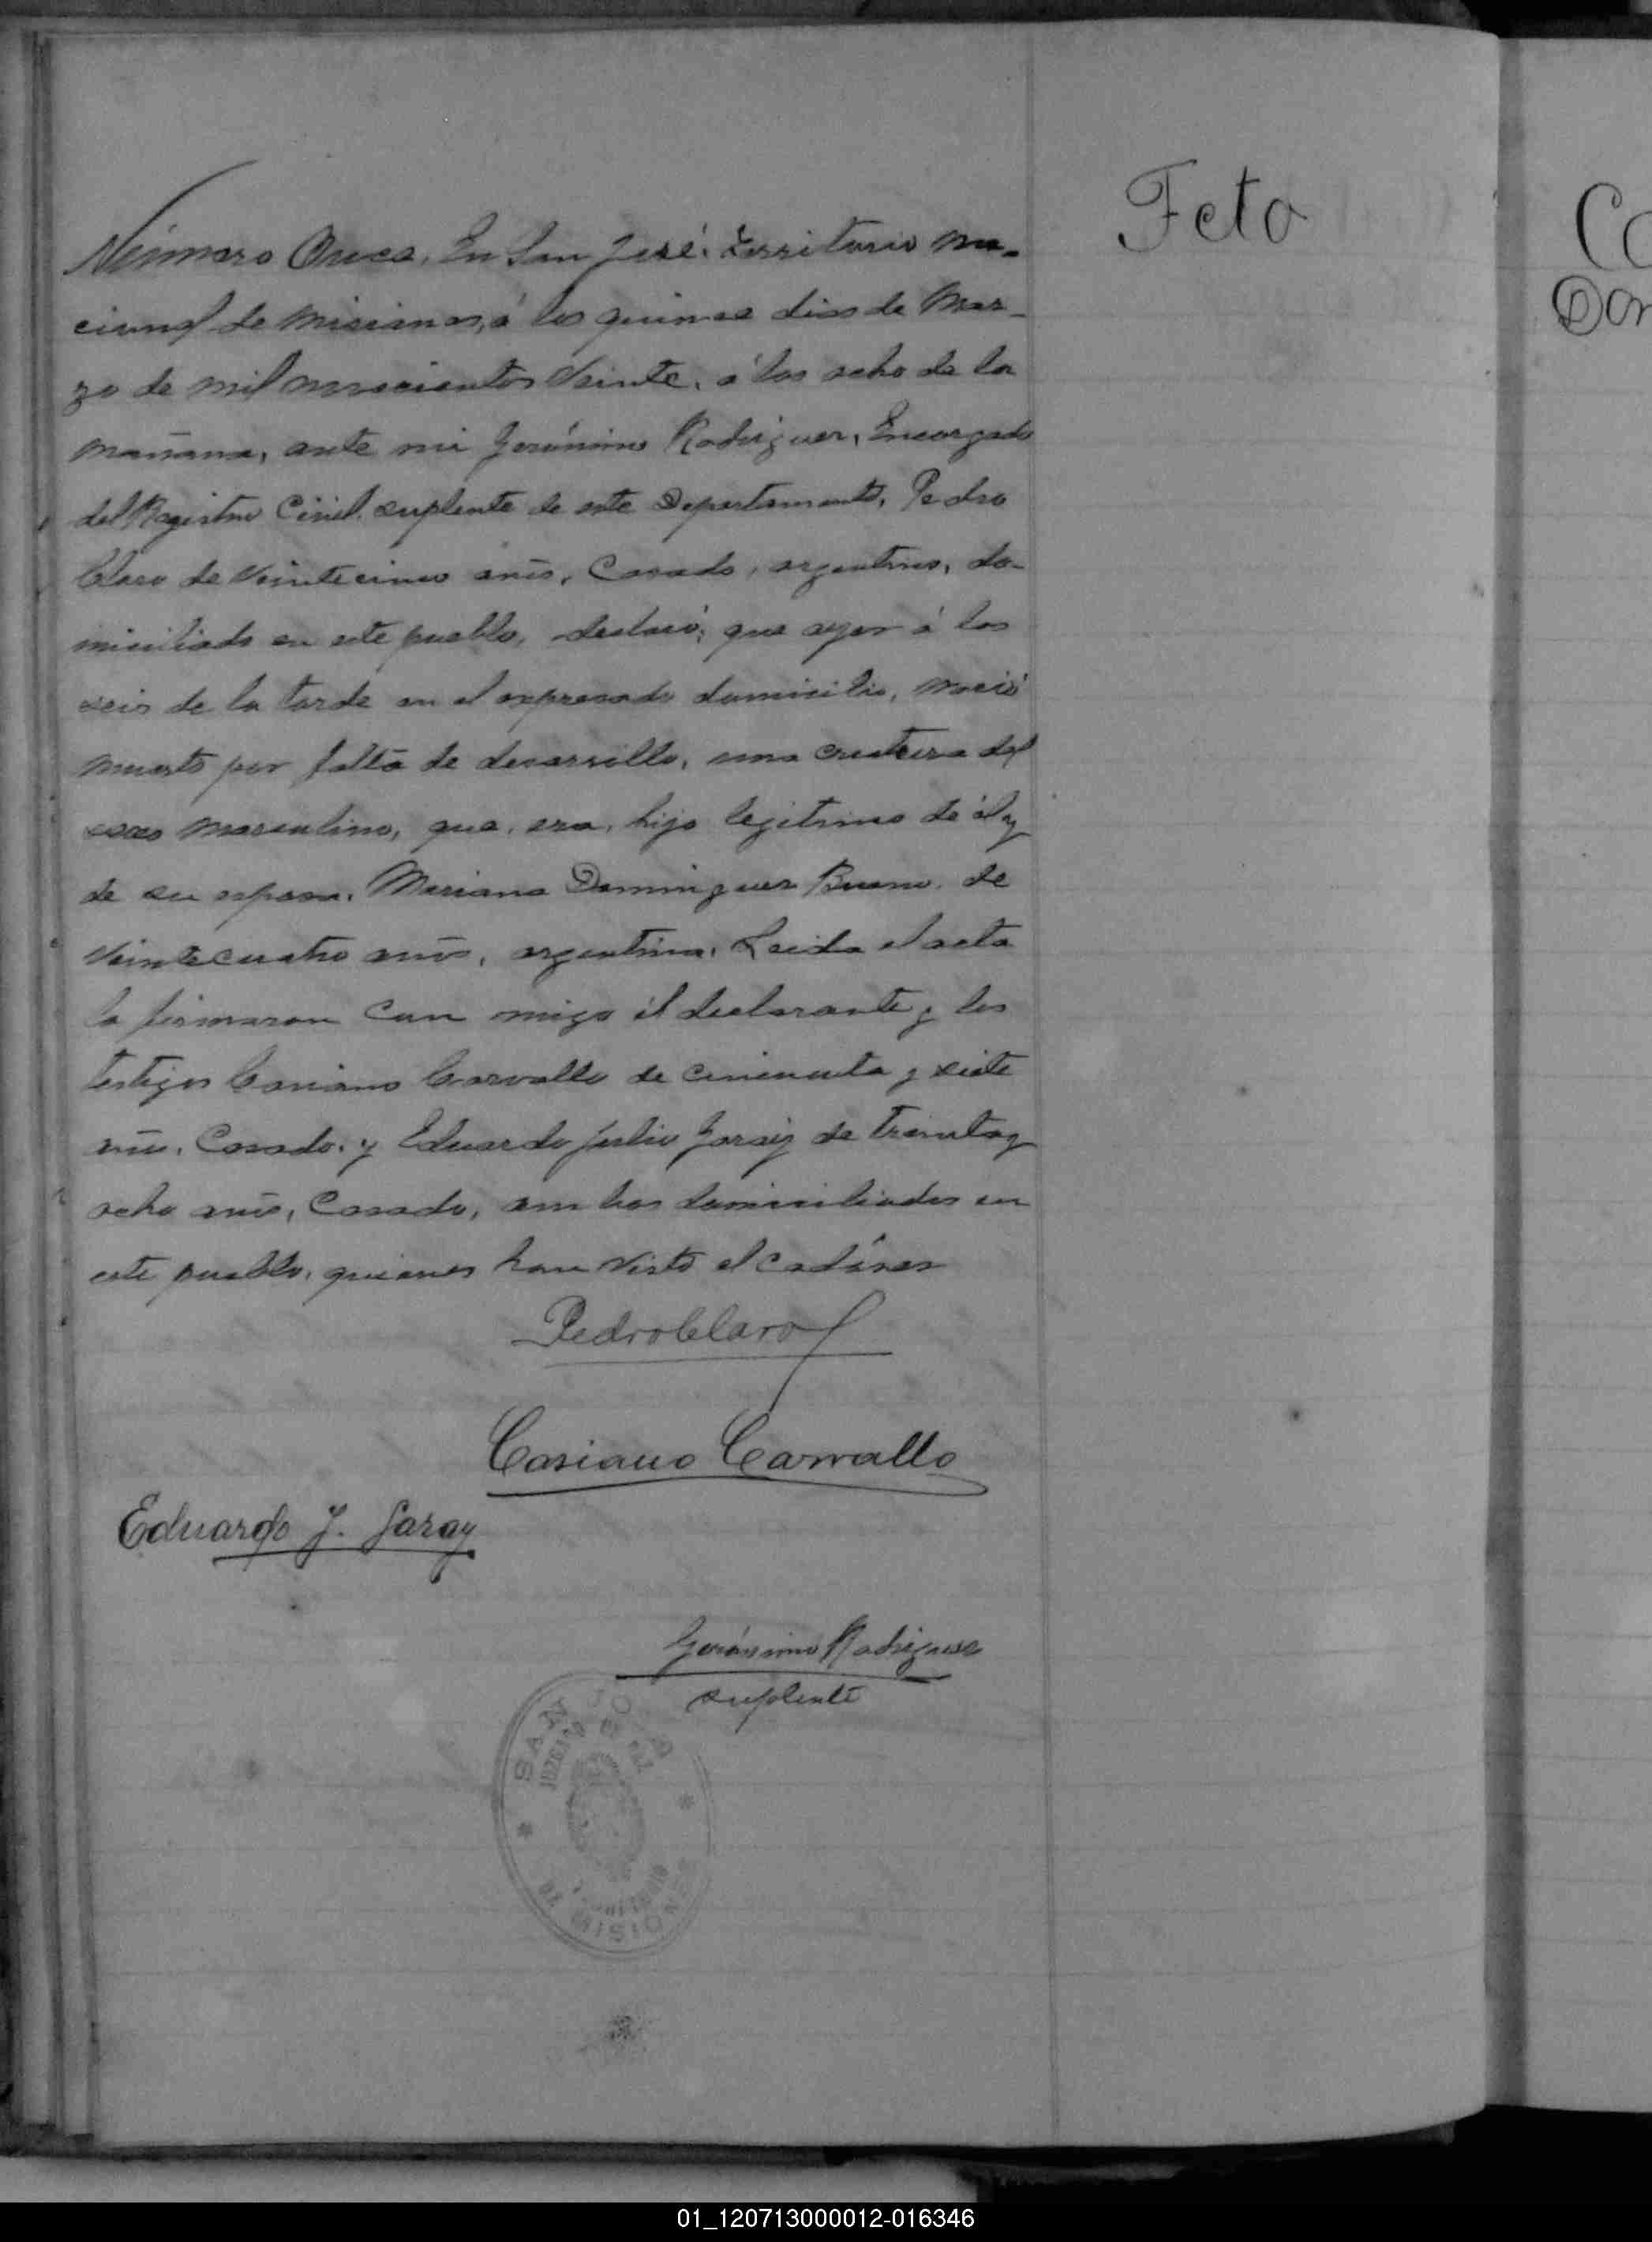 Feto
Número Once. En San José, Territorio na-
cional de Misiones, á los quince dias de Mar-
zo de mil novecientos veinte, á las ocho de la
mañana, ante mi Gerónimo Rodriguez, Encargado
del Registro Civil suplente de este Departamento, Pedro
Claro de veinticinco años, Casado, argentino, do-
miciliado en este pueblo, declaró; que ayer á las
seis de la tarde en el expresado domicilio, nació
muerto por falta de desarrollo, una creatura del
sexo masculino, que era, hijo legitimo de él y
de su esposa, Mariana Dominguez Bueno, de
veintecuatro años, argentina. Leida el acta
la firmaron con migo él declarante y los
testigos Casiano Carvallo de cincuenta y siete
años, Casado, y Eduardo Julio Garay de treinta y
ocho años, Casado, ambos domiciliados en
este pueblo, quienes han visto el cadáver
Pedro Claro
Casiano Carvallo
Eduardo J. Garay
Gerónimo Rodriguez
suplente
SAN
JUZGADO DE PAZ
DE MISIONES
Co
Don
01_120713000012-016346